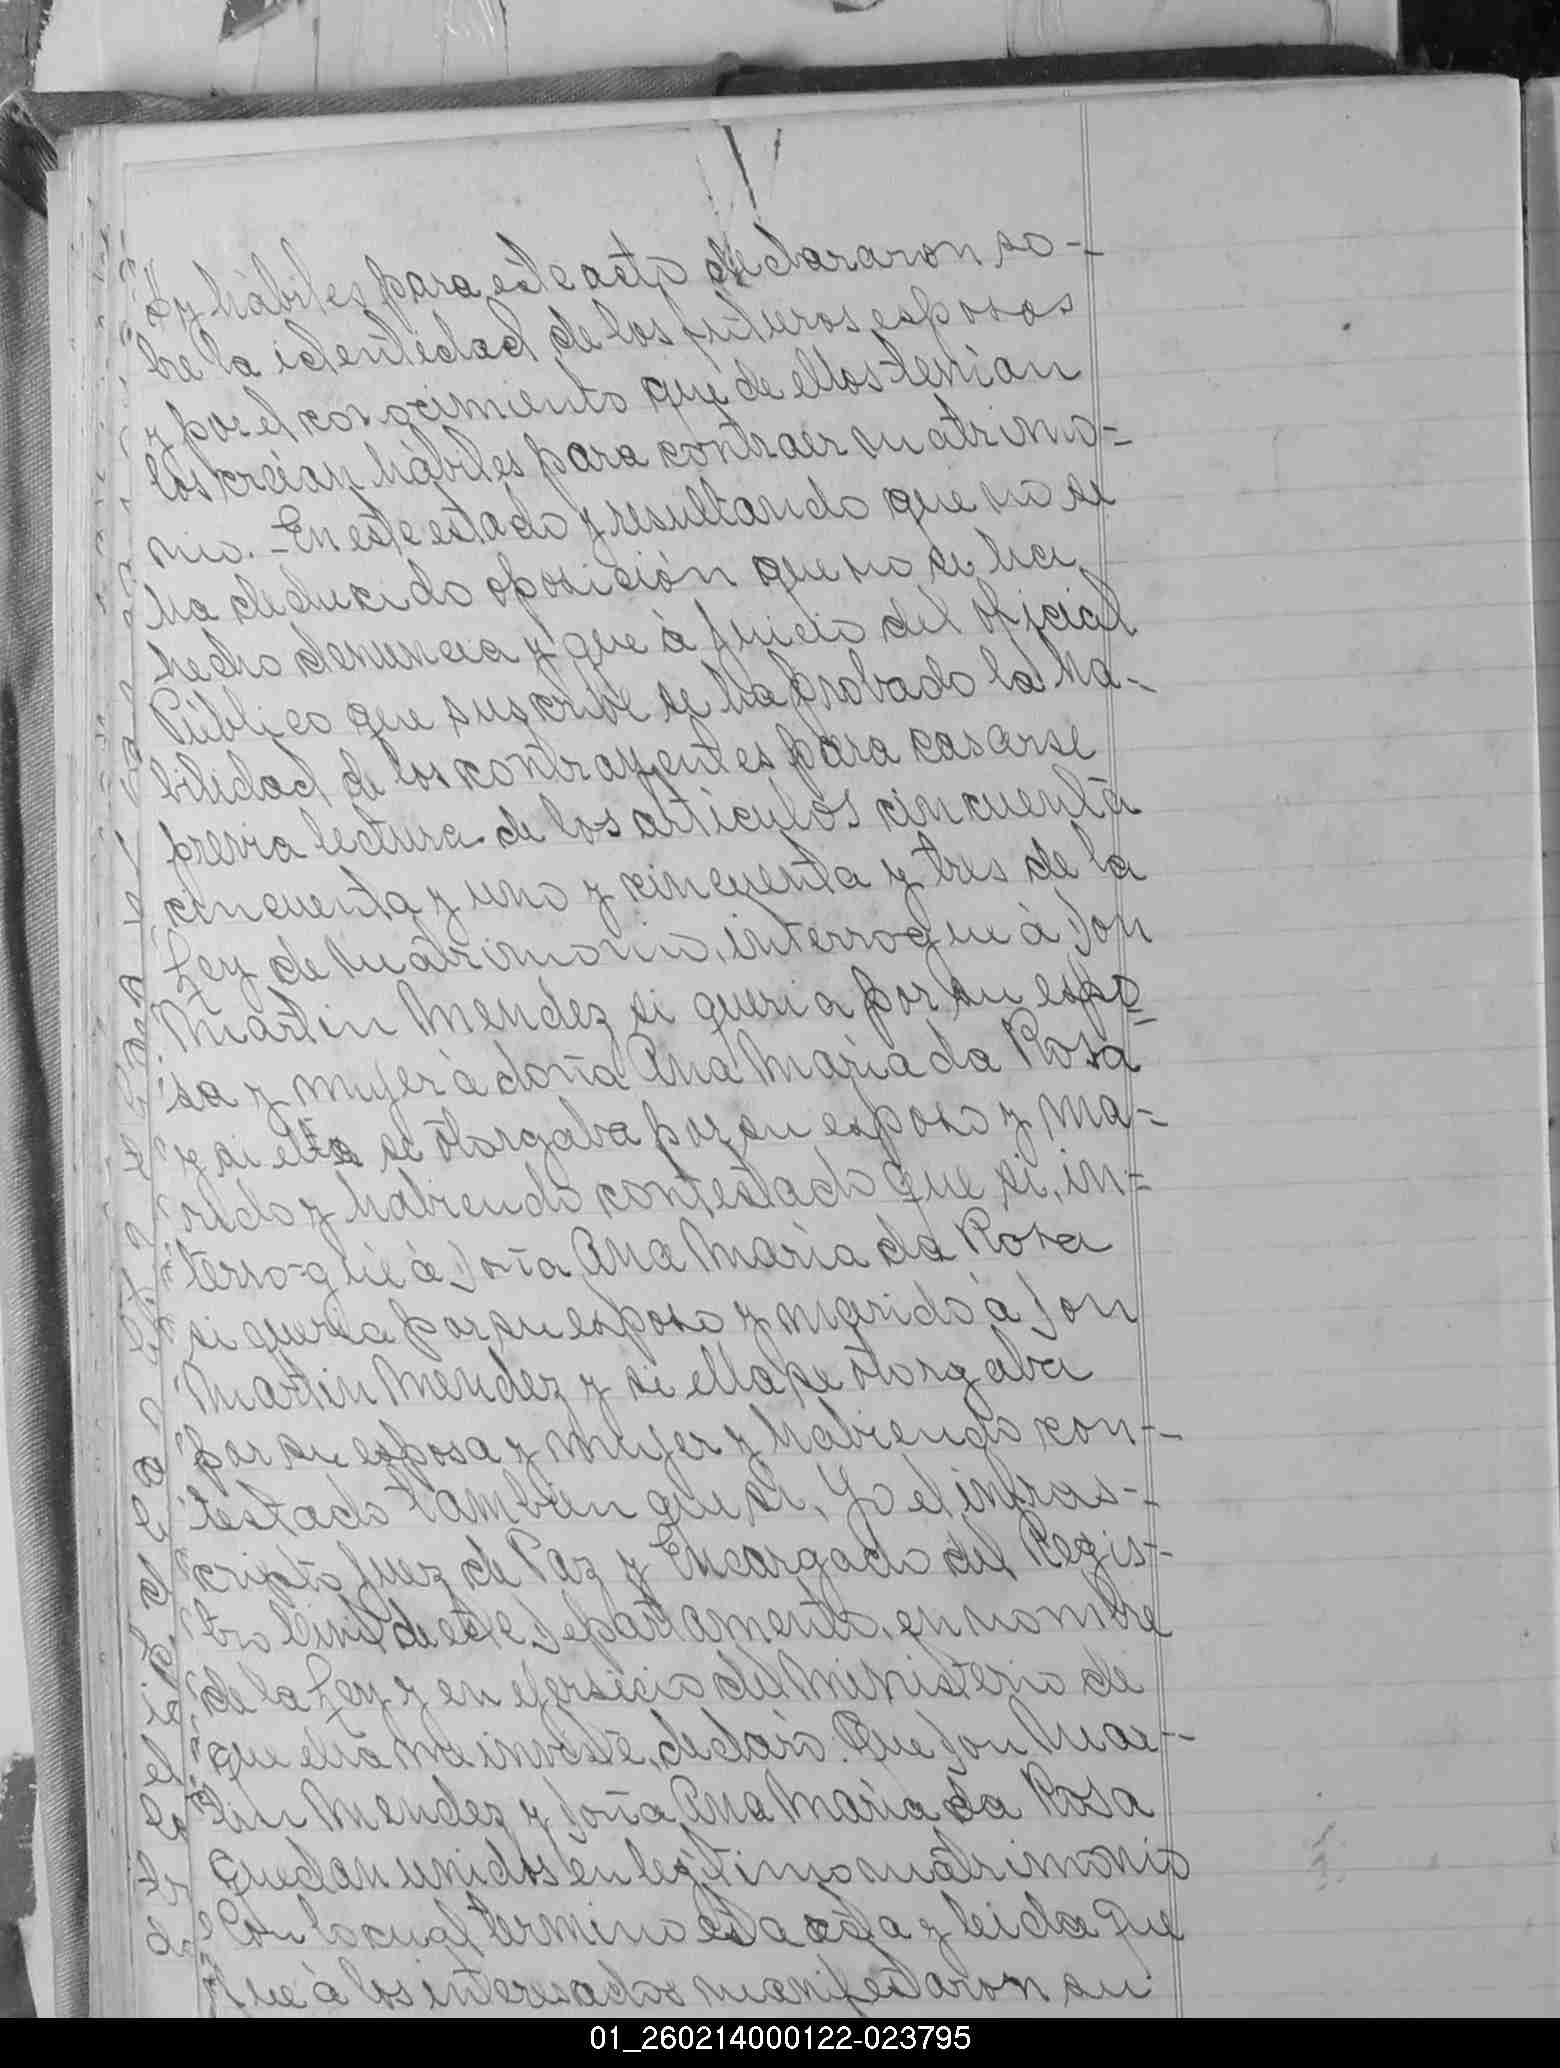 y hábiles para este acto declararon so-
bre la identidad de los futuros esposos
y por el conocimiento que de ellos tenian
los creian hábiles para contraer matrimo-
nio.- En este estado y resultando que no se
ha deducido oposición que no se ha
hecho denuncia y que á juicio del oficial
Público que suscribe se ha probado la ha-
bilidad de los contrayentes para casarse
previa lectura de los artículos cincuenta
cincuenta y uno y cincuenta y tres de la
Ley de Matrimonio, interrogué á Don
Martin Mendez si queria por su espo=
sa y mujer á doña Ana Maria da Rosa
y si el se otorgaba por su esposo y ma-
rido y habiendo contestado que si, in-
terrogué á Doña Ana Maria da Rosa
si queria por su esposo y marido á Don
Martin Mendez y si ella se otorgaba
por su esposa y mujer y habiendo con-
testado tambien que si, Yo el infras-
cripto Juez de Paz y Encargado del Regis-
tro Civil de este Departamento, en nombre
de la Ley y en ejersicio del Ministerio de
que ella me inviste, declaro: Que Don Mar-
tin Mendez y Doña Ana Maria da Rosa
quedan unidos en legitimo matrimonio
Con lo cual termino esta acta y leida que
fue á los interesados manifestaron su
01_260214000122-023795